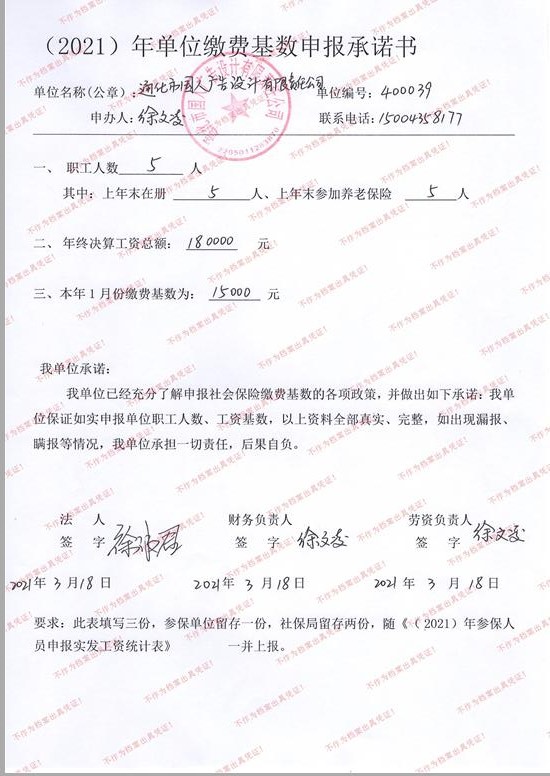 （2021）年单位缴费基数申报承诺书
单位名称(公章)：通化市国人广告设计有限责任公司 单位编号：400039
申办人：徐文彦 联系电话：15004358177
一、 职工人数 5 人
其中：上年末在册 5 人、上年末参加养老保险 5 人
二、年终决算工资总额： 180000 元
三、本年1月份缴费基数为： 15000 元
我单位承诺：
我单位已经充分了解申报社会保险缴费基数的各项政策，并做出如下承诺：我单
位保证如实申报单位职工人数、工资基数，以上资料全部真实、完整，如出现漏报、
瞒报等情况，我单位承担一切责任，后果自负。
法 人 财务负责人 劳资负责人
签 字 签 字 徐文彦 签 字 徐文彦
2021年 3月18日 2021年 3月18日 2021年 3月18日
要求：此表填写三份，参保单位留存一份，社保局留存两份，随《（2021）年参保人
员申报实发工资统计表》 一并上报。
不作为档案出具凭证！